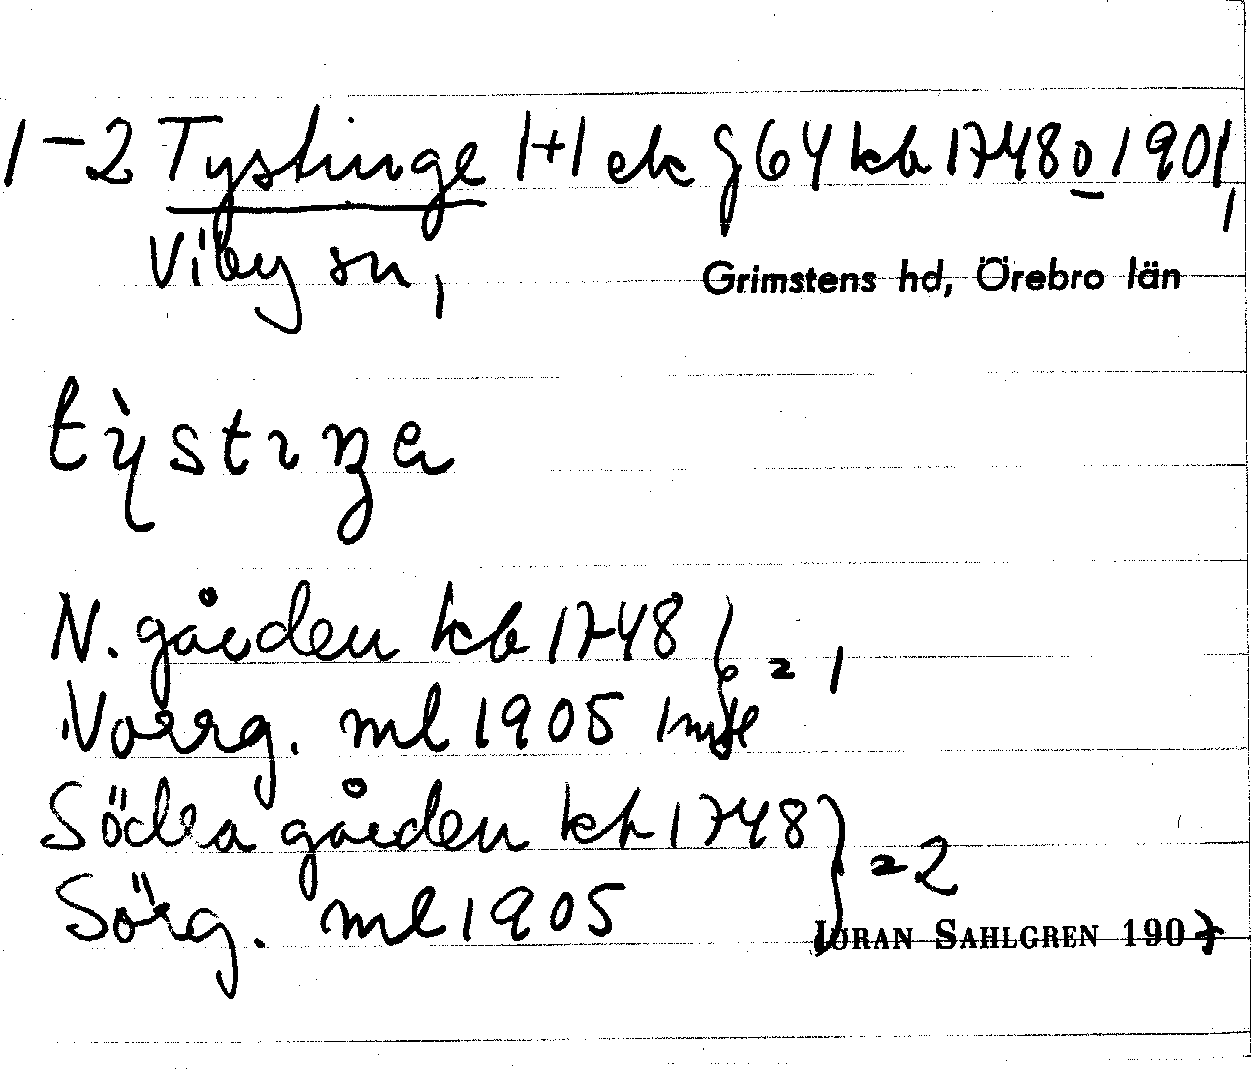 1-2 Tystinge 1+1 ek J64 kb 1748 o 1901,
Viby sn,
Grimstens hd, Örebro län
tỳstıŋa
N. gården kb 1748
= 1
Norrg. ml 1905
Södra gården kb 1748
= 2
Sörg. ml 1905
JÖRAN SAHLGREN 1907